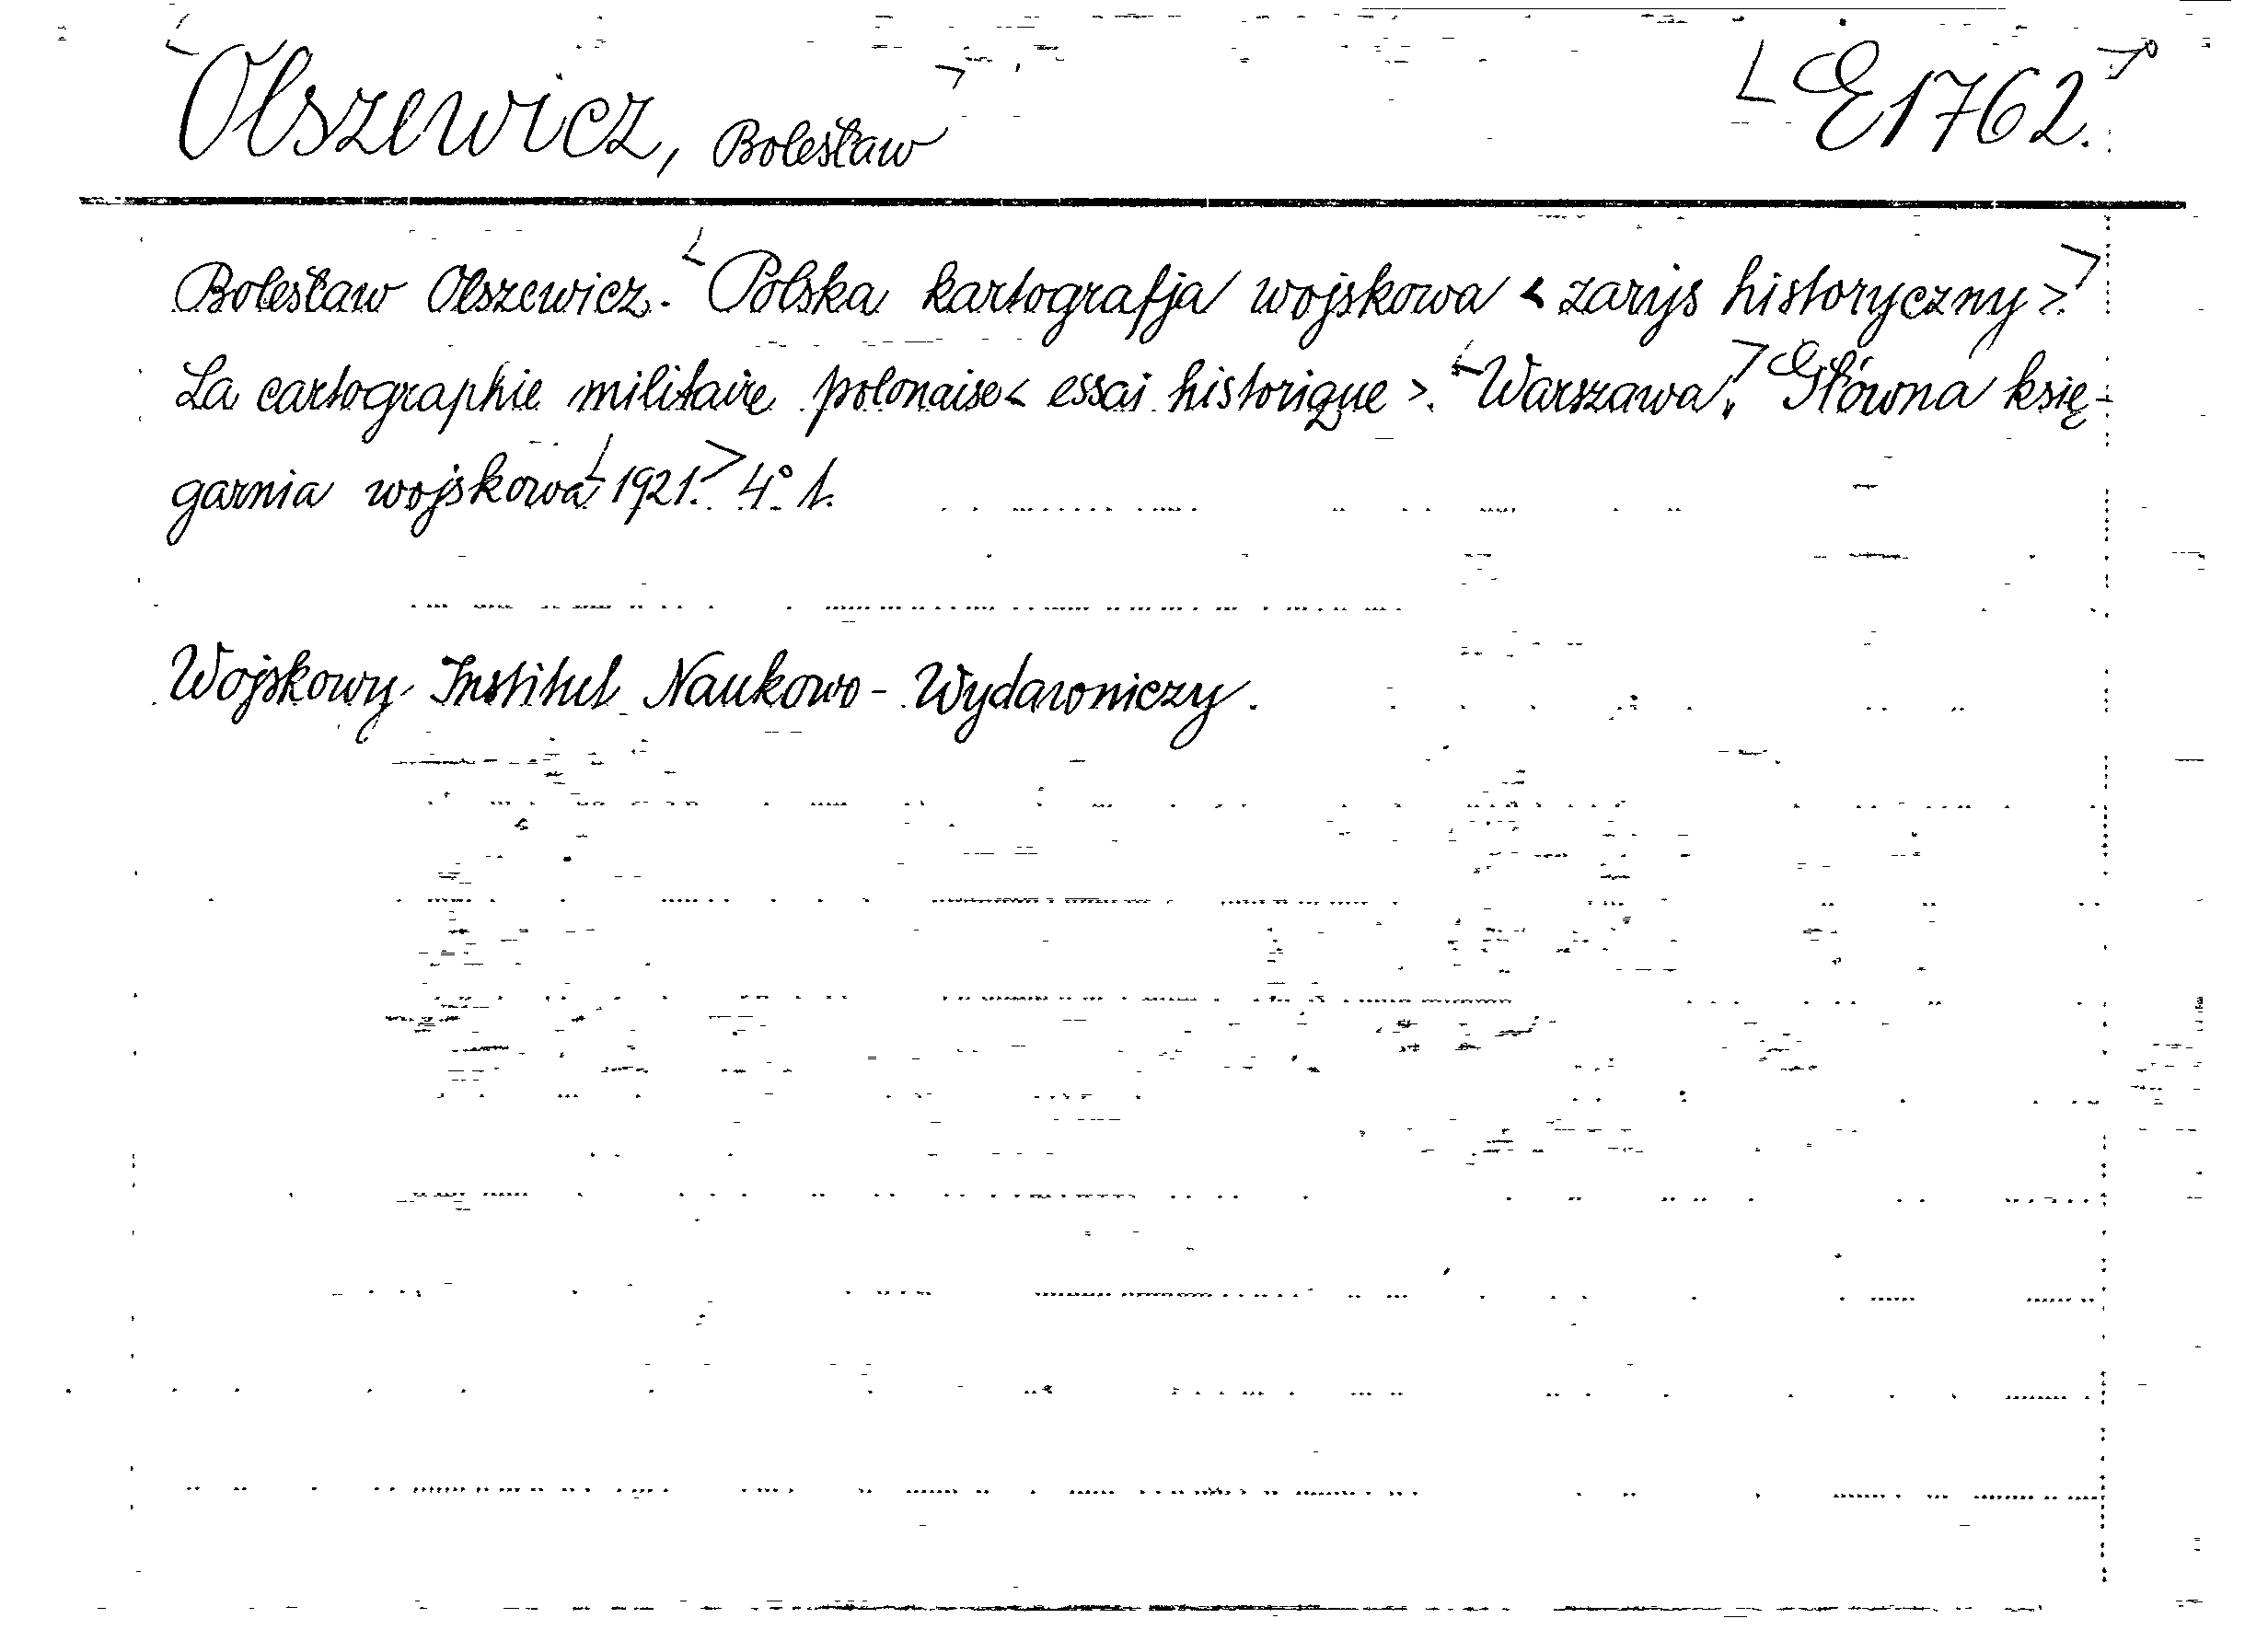 Olszewicz, Bolesław E1762.
Bolesław Olszewicz. Polska kartografja wojskowa < zarys historyczny >.
La cartographie militaire polonaise < essai historique >. Warszawa, Główna księ-
garnia wojskowa 1921. 4° 1.
Wojskowy Institut Naukowo - Wydawniczy.